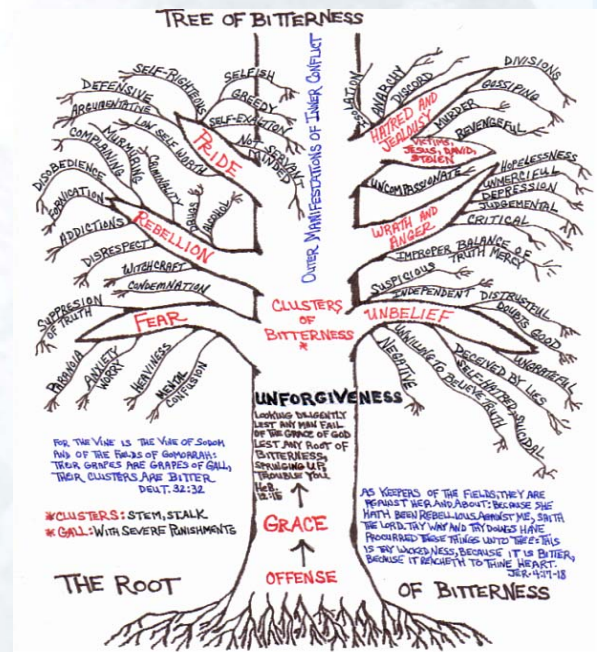 TREE OF BITTERNESS
OUTER MANIFESTATIONS OF INNER CONFLICT
SELF-RIGHTEOUS
DEFENSIVE
ARGUMENTATIVE
LOW SELF WORTH
SELFISH
GREEDY
SELF-EXALTION
NOT SERVANT
MINDED
PRIDE
MURMURING
COMPLAINING
CRIMINALITY
DRUGS
ALCOHOL
DISOBEDIENCE
FORNICATION
ADDICTIONS
DISRESPECT
WITCHCRAFT
REBELLION
CONDEMNATION
SUPPRESSION
OF TRUTH
FEAR
PARANOIA
ANXIETY
WORRY
HEAVINESS
MENTAL
CONFUSION
ANARCHY
DISCORD
DIVISIONS
GOSSIPING
HATRED AND
JEALOUSY
MURDER
REVENGEFUL
VICTIMS,
JESUS, DAVID,
STOLEN
UNCOMPASSIONATE
HOPELESSNESS
UNMERCIFUL
DEPRESSION
JUDGEMENTAL
CRITICAL
WRATH AND
ANGER
IMPROPER BALANCE OF
TRUTH MERCY
SUSPICIOUS
INDEPENDENT
DISTRUSTFUL
DOUBTS GOOD
UNBELIEF
UNGRATEFUL
DECEIVED BY LIES
SELF-HATRED, SUICIDAL
UNWILLING TO BELIEVE TRUTH
NEGATIVE
CLUSTERS
OF
BITTERNESS
*
UNFORGIVENESS
LOOKING DILIGENTLY
LEST ANY MAN FAIL
OF THE GRACE OF GOD
LEST ANY ROOT OF
BITTERNESS,
SPRINGING UP,
TROUBLE YOU
HEB.
12:15
GRACE
OFFENSE
FOR THE VINE IS THE VINE OF SODOM
AND OF THE FIELDS OF GOMORRAH:
THEIR GRAPES ARE GRAPES OF GALL,
THEIR CLUSTERS ARE BITTER
DEUT. 32:32
*CLUSTERS: STEM, STALK
*GALL: WITH SEVERE PUNISHMENTS
AS KEEPERS OF THE FIELDS, THEY ARE
AGAINST HER AND ABOUT: BECAUSE SHE
HATH BEEN REBELLIOUS AGAINST ME, SAITH
THE LORD. THY WAY AND THY DOINGS HAVE
PROCURRED THESE THINGS UNTO THEE: THIS
IS THY WICKEDNESS, BECAUSE IT IS BITTER,
BECAUSE IT REACHETH TO THINE HEART.
JER. 4:17-18
THE ROOT
OF BITTERNESS